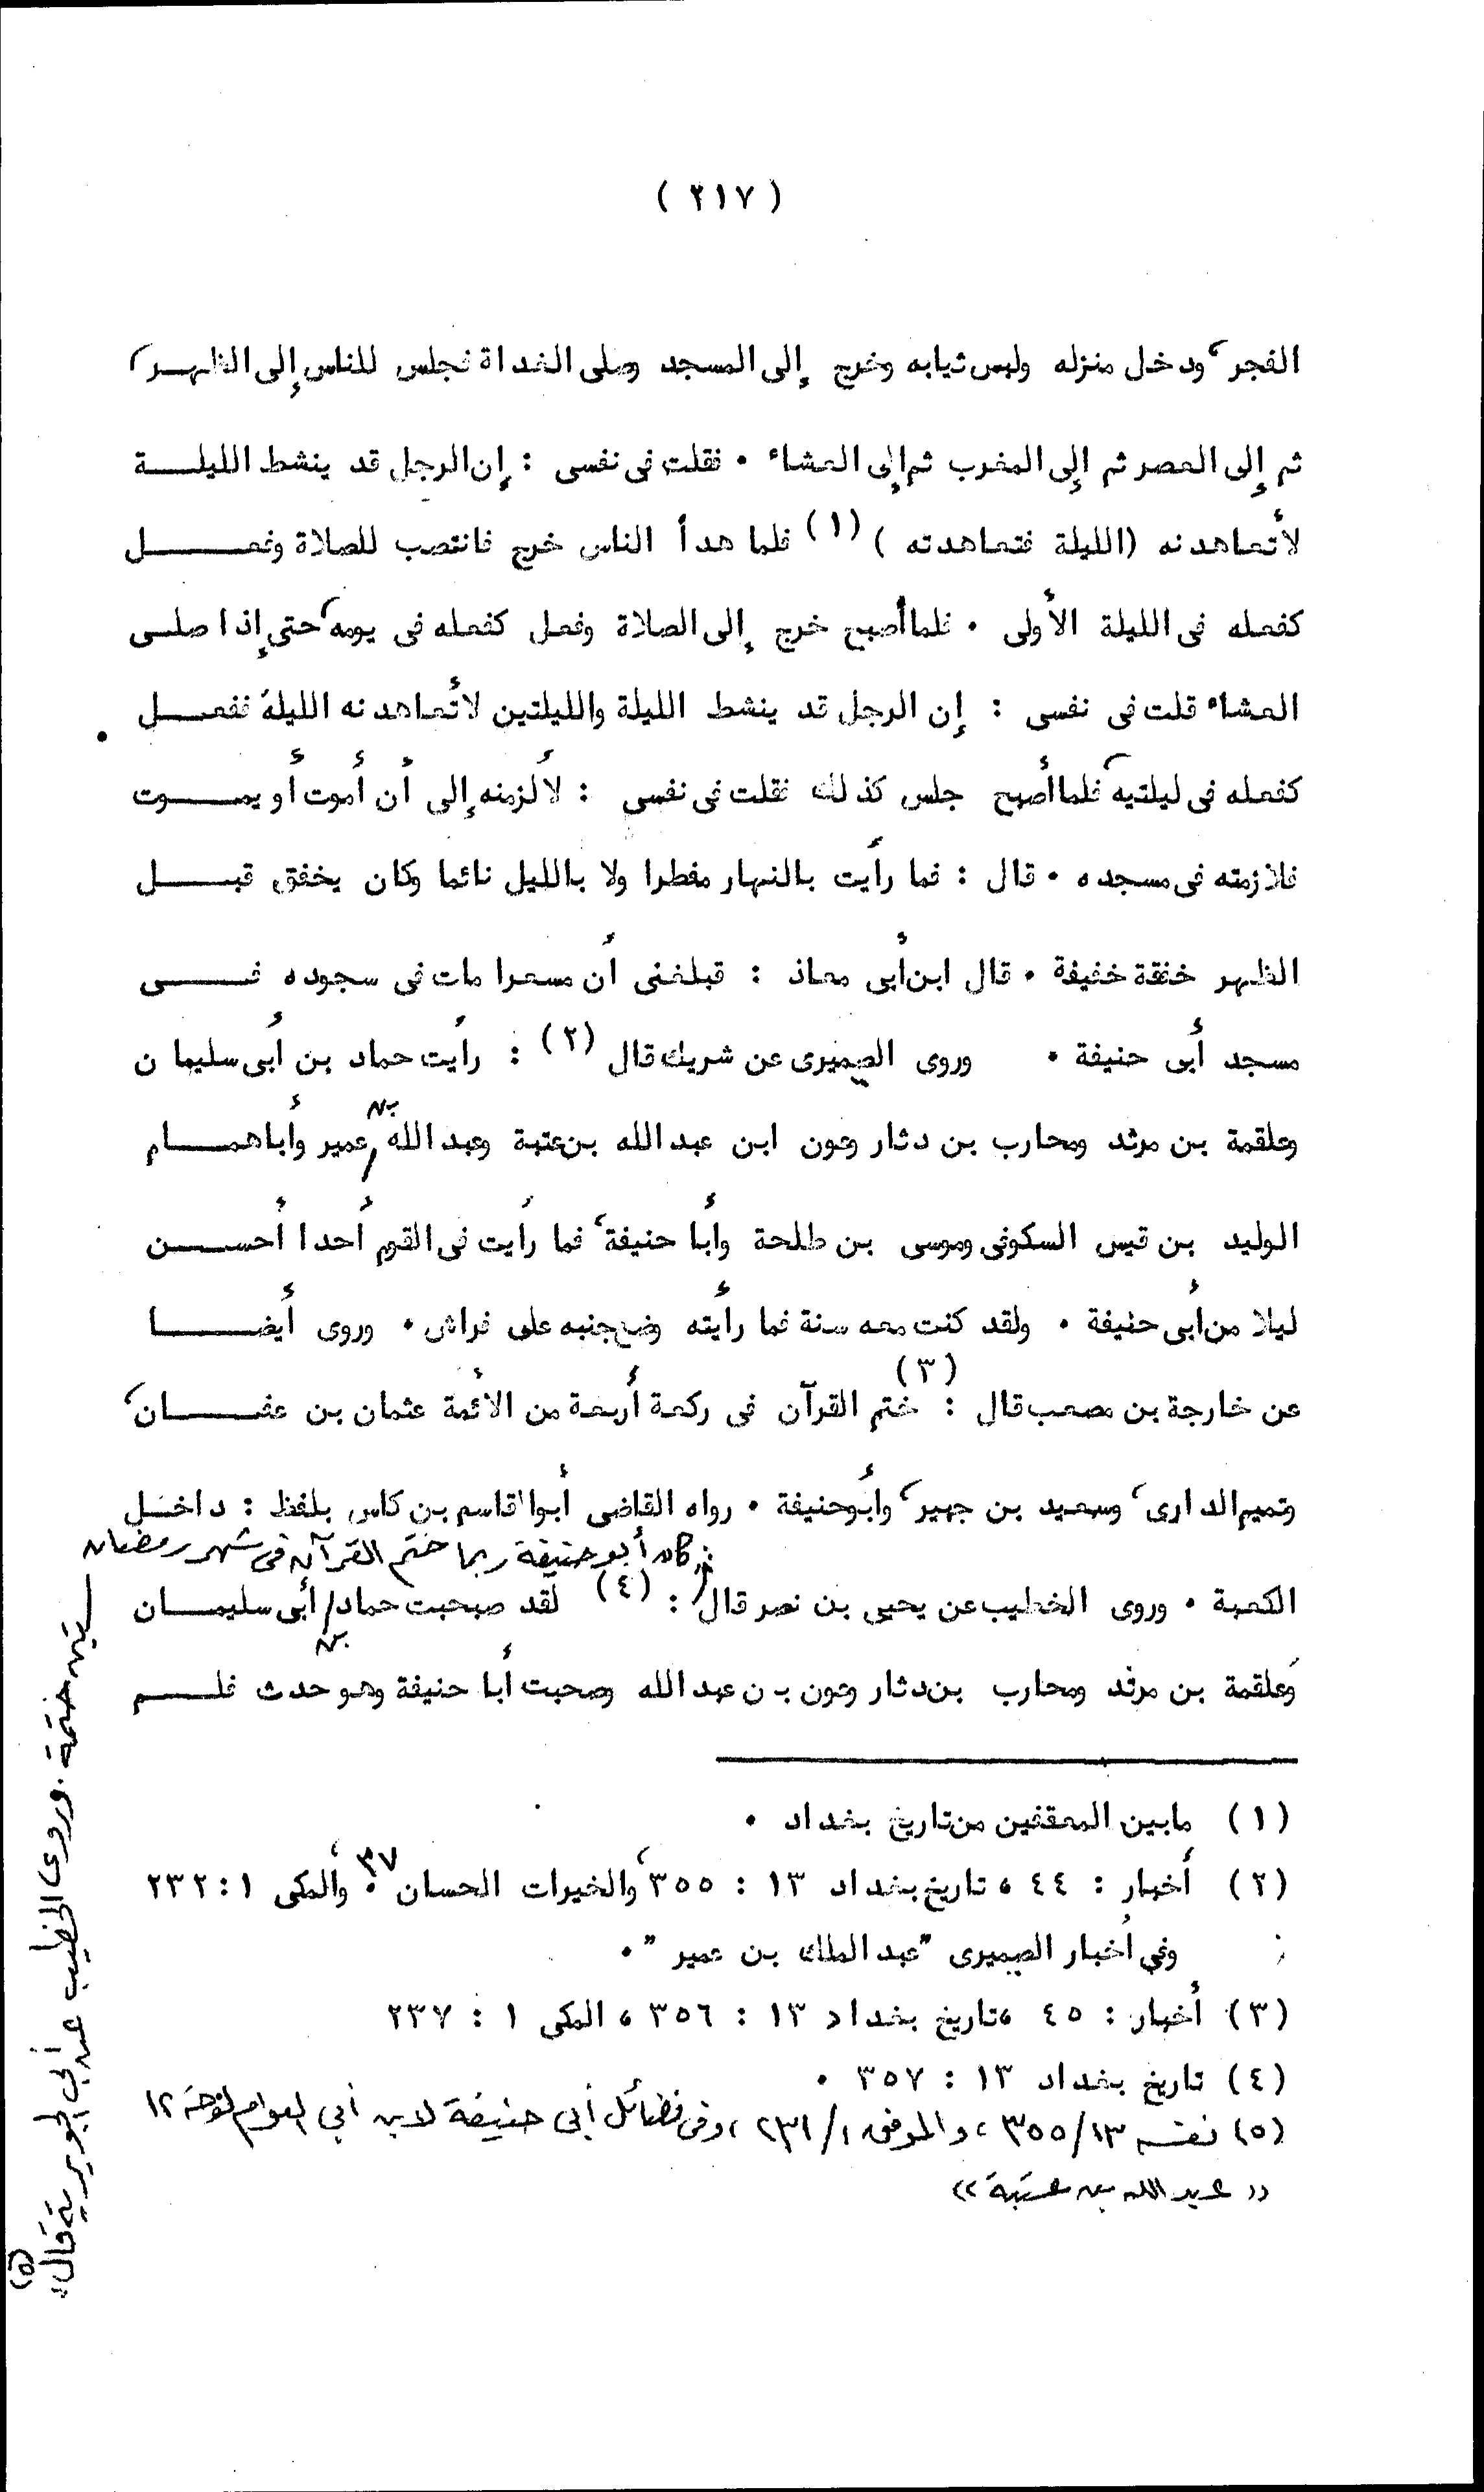 ( ٢١٧ )
الفجر، ودخل منزله ولبس ثيابه وخرج إلى المسجد وصلى الغداة فجلس للناس إلى الظهر،
ثم إلى العصر ثم إلى المغرب ثم إلى العشاء . فقلت في نفسي : إن الرجل قد ينشط الليلة
لأتعاهدنه (الليلة فتعاهدته ) (١) فلما هدأ الناس خرج فانتصب للصلاة وفعل
كفعله في الليلة الأولى . فلما أصبح خرج إلى الصلاة وفعل كفعله في يومه، حتى إذا صلى
العشاء قلت في نفسي : إن الرجل قد ينشط الليلة والليلتين لأتعاهدنه الليلة ففعل .
كفعله في ليلتيه، فلما أصبح جلس كذلك فقلت في نفسي : لألزمنه إلى أن أموت أو يموت
فلازمته في مسجده . قال : فما رأيت بالنهار مفطرا ولا بالليل نائما وكان يخفق قبل
الظهر خفقة خفيفة . قال ابن أبي معاذ : قبلغني أن مسعرا مات في سجوده في
مسجد أبي حنيفة . وروى الصيميرى عن شريك قال (٢) : رأيت حماد بن أبي سليمان
وعلقمة بن مرثد ومحارب بن دثار وعون ابن عبد الله بن عتبة وعبد الله بن عمير وأبا همام
الوليد بن قيس السكوني وموسى بن طلحة وأبا حنيفة، فما رأيت في القوم أحدا أحسن
ليلا من أبي حنيفة . ولقد كنت معه سنة فما رأيته وضع جنبه على فراش . وروى أيضا
عن خارجة بن مصعب قال : (٣) ختم القرآن في ركعة أربعة من الأئمة عثمان بن عفان،
وتميم الدارى، وسعيد بن جبير، وأبو حنيفة . رواه القاضي أبو القاسم بن كاس بلفظ : داخل
الكعبة . وروى الخطيب عن يحيى بن نصر قال : (٤) كان أبو حنيفة ربما ختم القرآن في شهر رمضان
ستين ختمة . وروى الخطيب عن أبي الجويرية قال : (٥)
لقد صبحبت حماد بن أبي سليمان
وعلقمة بن مرثد ومحارب بن دثار وعون بن عبد الله وصحبت أبا حنيفة وهو حدث فلم
(١) مابين المعقفين من تاريخ بغداد .
(٢) أخبار : ٤٤ ، تاريخ بغداد ١٣ : ٣٥٥، والخيرات الحسان ٣٧ . والمكى ١ : ٢٣٢
وفي أخبار الصيميرى "عبد الملك بن عمير" .
(٣) أخبار : ٤٥ ، تاريخ بغداد ١٣ : ٣٥٦ ، المكى ١ : ٢٣٧
(٤) تاريخ بغداد ١٣ : ٣٥٧ .
(٥) نفسه ١٣/ ٣٥٥ ، والموفق ١/ ٢٣١ ، وفي فضائل أبي حنيفة لابن أبي العوام لوحة ١٢
« عبد الله بن عتبة »